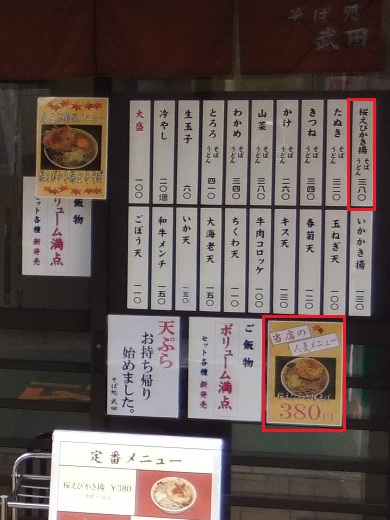 そば処
武田
桜えびかき揚 そば うどん 三八〇
たぬき そば うどん 三二〇
きつね そば うどん 三四〇
かけ そば うどん 二八〇
山菜 そば うどん 三八〇
わかめ そば うどん 三四〇
とろろ そば うどん 四一〇
生玉子 六〇
冷やし 二〇増
大盛 一〇〇
いかかき揚 一三〇
玉ねぎ天 一一〇
春菊天 一二〇
キス天 一三〇
牛肉コロッケ 一〇〇
ちくわ天 一一〇
大海老天 一五〇
いか天 一五〇
和牛メンチ 一五〇
ごぼう天 一一〇
ご飯物
ボリューム満点
セット各種 新発売
天ぷら
お持ち帰り
始めました。
そば処 武田
ご飯物
ボリューム満点
セット各種 新発売
当店の
人気メニュー
桜えびかき揚げそば
380円
定番メニュー
桜えびかき揚 ¥380